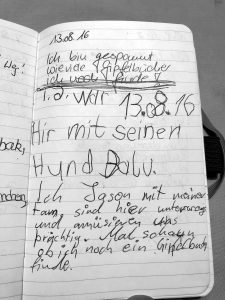 13.08.16
Ich bin gespannt
wieviele Gipfelbücher
ich noch finde!
T.d. War 13.08.16
Hir mit seinen
Hund Balu.
Ich Jason mit meiner
Fam sind hier unterwegs
und amüsieren uns
prächtig. Mal schaun
ob ich noch ein Gipfelbuch
finde.